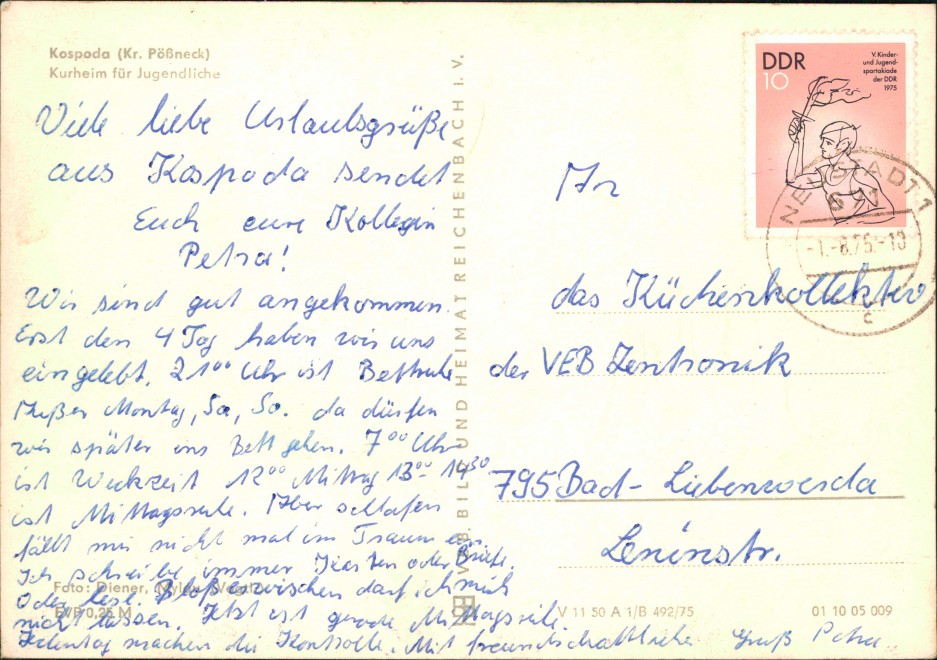 Kospoda (Kr. Pößneck)
Kurheim für Jugendliche
Viele liebe Urlaubsgrüße
aus Kospoda sendet
Euch eure Kollegin
Petra!
Wir sind gut angekommen.
Erst den 4 Tag haben wir uns
eingelebt. 21⁰⁰ Uhr ist Bettruhe
Außer Montag, Sa, So. da dürfen
wir später ins Bett gehen. 7⁰⁰ Uhr
ist Weckzeit 12⁰⁰ Mittag 13⁰⁰-14³⁰
ist Mittagsruhe. Aber schlafen
fällt mir nicht mal im Traum ein.
Ich schreibe immer Karten oder Briefe.
Oder lese. Bloß erwischen darf ich mich
nicht lassen. Jetzt ist gerade Mittagsruhe.
Jedentag machen die Kontrolle. Mit freundschaftliche Gruß Petra
Foto: Diener, Mylau (Vogtl.)
EVP 0,25 M
VEB BILD UND HEIMAT REICHENBACH I. V.
V 11 50 A 1/B 492/75
01 10 05 009
DDR
10
V. Kinder-
und Jugend-
spartakiade
der DDR
1975
NEUSTADT 1
-1.-8.75.-10
c
An
das Küchenkollektiv
der VEB Zentronik
795 Bad-Liebenwerda
Leninstr.